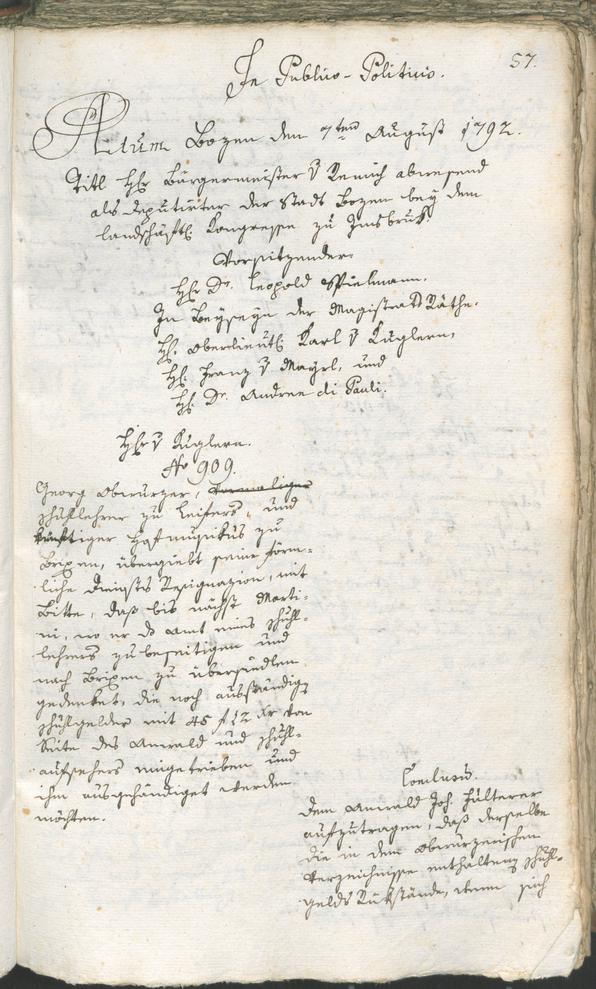 57.
In Publico-Politicis.
Actum Bozen den 7ten August 1792.
Titl Hr Bürgermeister v Remich abwesend
als Deputirter der Stadt Bozen bey dem
landschäftl. Kongresse zu Insbruk
Vorsitzender
Hr Dr. Leopold Spielmann.
In Beyseyn der Magistrats Räthe.
H. Oberlieut. Karl v Kuglern,
H. Franz v Mayrl, und
H. Dr. Andree di Pauli.
Hr v Kuglern.
No 909.
Georg Obwurzer, vormaliger
Schullehrer zu Leifers, und
künftiger Hofmusikus zu
Brixen, übergiebt seine förm-
liche Diensts Resignazion, mit
Bitte, daß bis nächst Marti-
ni, wo er ds Amt eines Schul-
lehrers zu beseitigen und
nach Brixen zu übersiedlen
gedenket, die noch ausständige
Schulgelder mit 45 f 12 xr von
Seite des Anwald und Schul-
aufsehers eingetrieben und
ihm ausgehändiget werden
möchten.
Conclusum.
Dem Anwald Joh. Hülterer
aufzutragen, daß derselbe
die in dem Obwurzerischen
Verzeichnisse enthaltene Schul-
gelds Rükstände, wenn sich